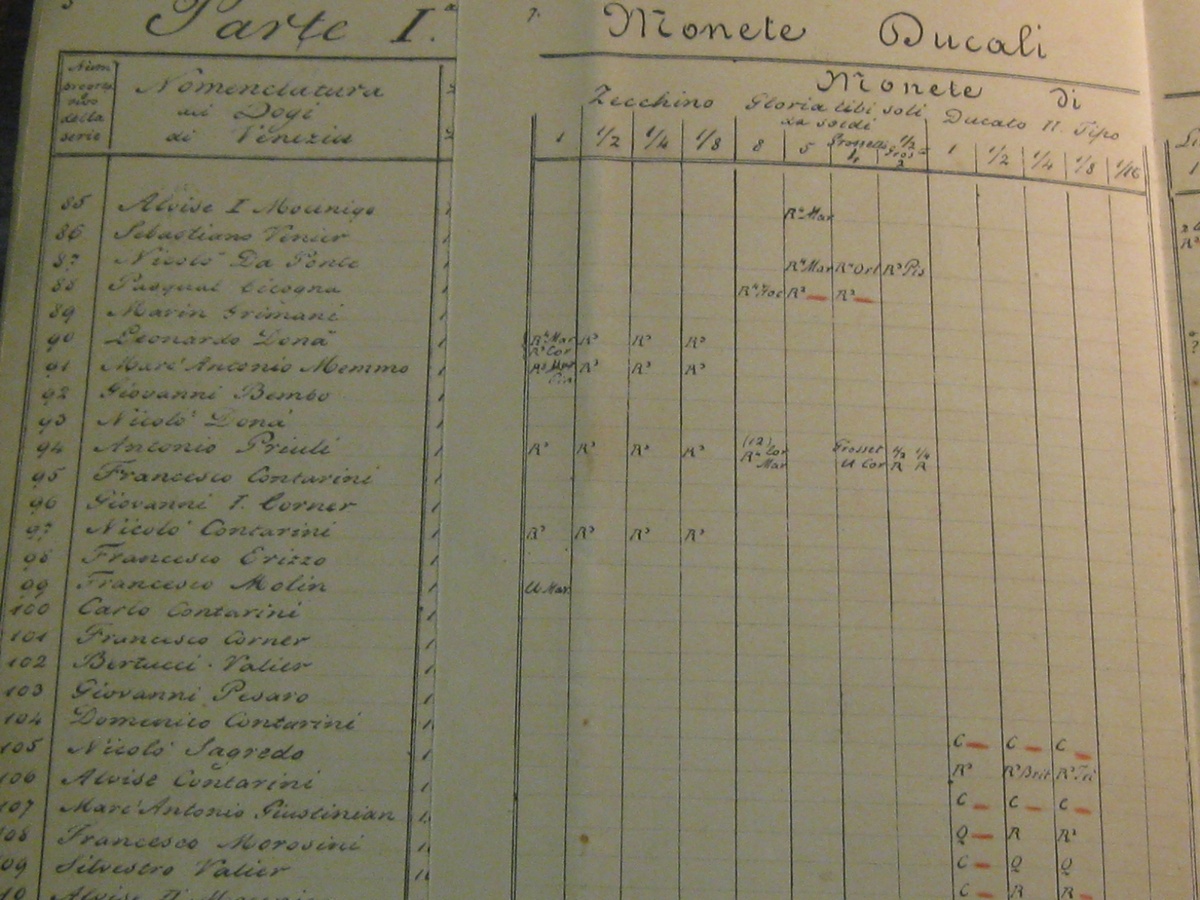 Parte I.ª
7.
Monete Ducali
Nomenclatura
dei Dogi
di Venezia
della
serie
Monete di
Zecchino Gloria tibi soli Ducato II. Tipo
da soldi
1 1/2 1/4 1/8 8 5 Grossetto 1/2 1 1/2 1/4 1/8 1/16
85 Alvise I Mocenigo R⁴ Mar
86 Sebastiano Venier
87 Nicolò Da Ponte R⁴ Mar R⁴ Ort R³ Pis
88 Pasqual Cicogna R² R³
89 Marin Grimani
90 Leonardo Donà R⁴ Mar R³ R³ R³
R³ Cor
91 Marc'Antonio Memmo R³ R³ R³
92 Giovanni Bembo
93 Nicolò Donà
94 Antonio Priuli R³ R³ R³ R³ (12) Cor Mar Grosset U Cor 1/2 R 1/4 R
95 Francesco Contarini
96 Giovanni I. Corner
97 Nicolò Contarini R³ R³ R³ R³
98 Francesco Erizzo
99 Francesco Molin U Mar
100 Carlo Contarini
101 Francesco Corner
102 Bertucci Valier
103 Giovanni Pesaro
104 Domenico Contarini
105 Nicolò Sagredo C C C
106 Alvise Contarini R³ R³ R³
107 Marc'Antonio Giustinian C C C
108 Francesco Morosini Q R R²
109 Silvestro Valier C Q Q
C R R